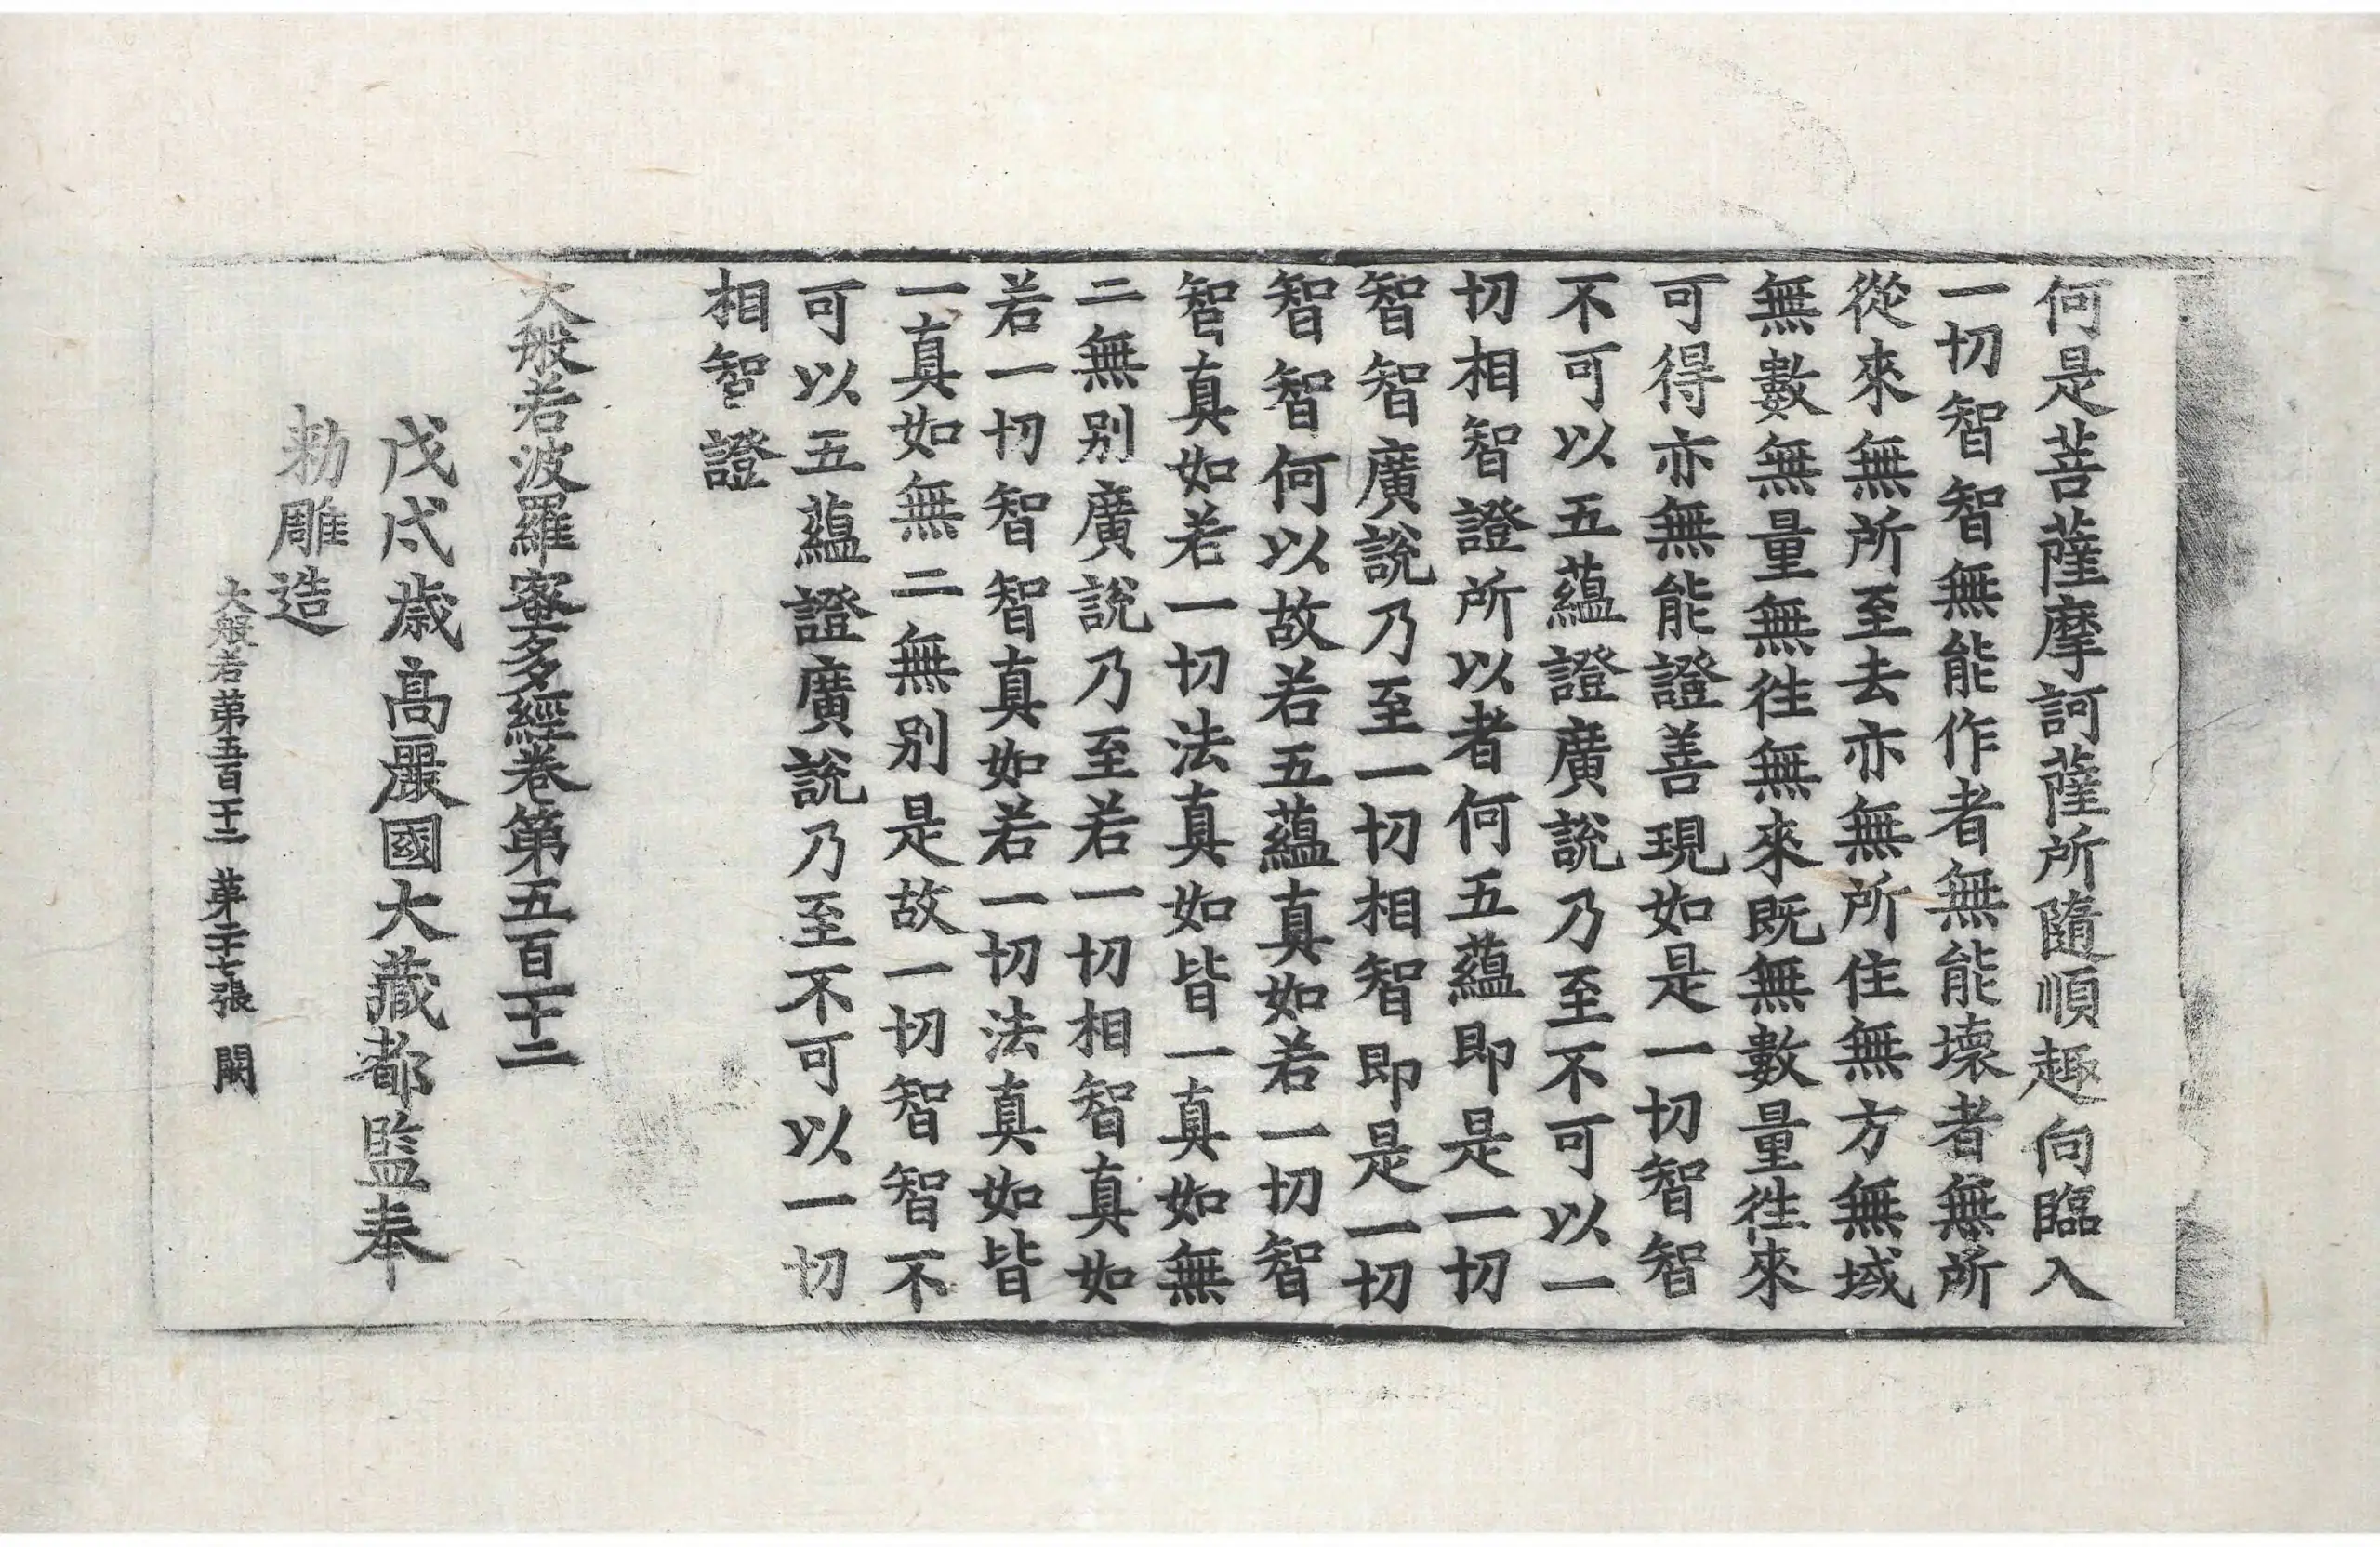 何是菩薩摩訶薩所隨順趣向臨入
一切智智無能作者無能壞者無所
從來無所至去亦無所住無方無域
無數無量無往無來既無數量往來
可得亦無能證善現如是一切智智
不可以五蘊證廣說乃至不可以一
切相智證所以者何五蘊即是一切
智智廣說乃至一切相智即是一切
智智何以故若五蘊真如若一切智
智真如若一切法真如皆一真如無
二無別廣說乃至若一切相智真如
若一切智智真如若一切法真如皆
一真如無二無別是故一切智智不
可以五蘊證廣說乃至不可以一切
相智證
大般若波羅蜜多經卷第五百一十二
戊戌歲高麗國大藏都監奉
勑雕造
大般若第五百一十二 第二十七張 闕